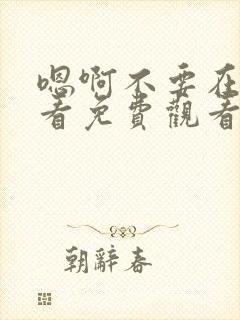 嗯啊不要在
看免費觀看
朝辭春